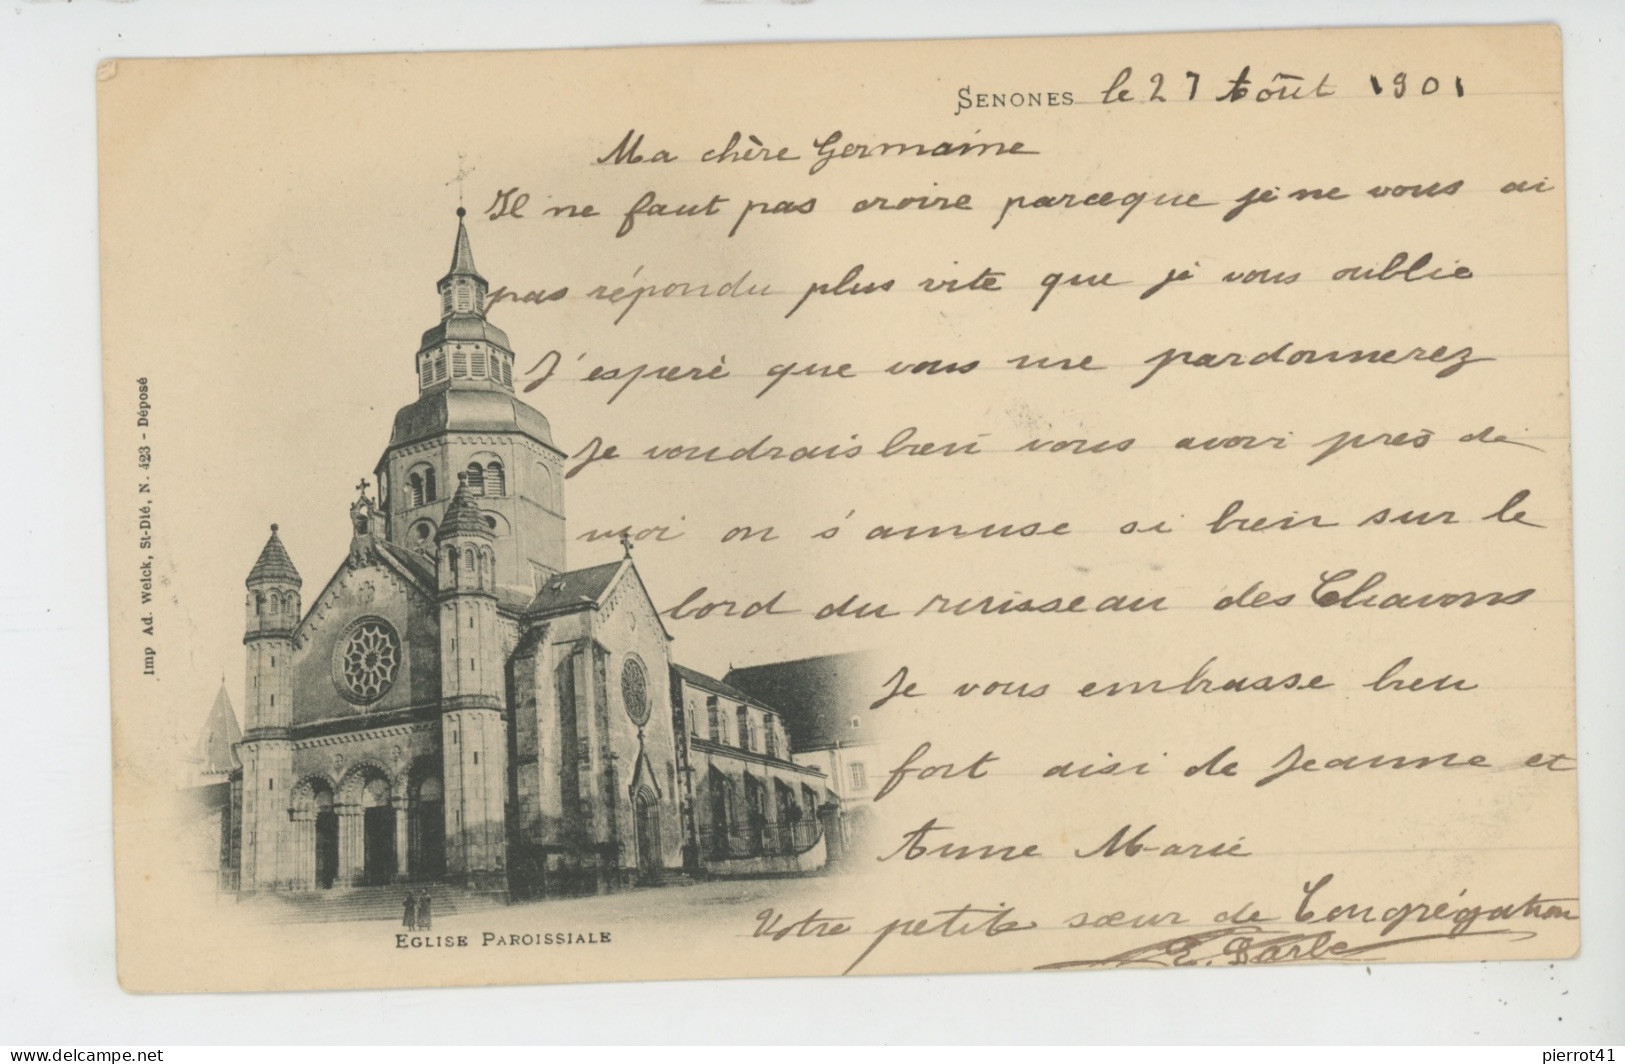 SENONES le 27 Août 1901
Ma chère Germaine
Il ne faut pas croire parceque je ne vous ai
pas répondu plus vite que je vous oublie
J'esperè que vous me pardonnerez
Je voudrais bien vous avoir près de
moi on s'amuse si bien sur le
bord du ruisseau des Chavons
Je vous embrasse bien
fort aisi de Jeanne et
Anne Marie
Votre petite sœur de Congrégation
E. Barbe
EGLISE PAROISSIALE
Imp Ad. Weick, St-Dié, N. 423 - Déposé
pierrot41